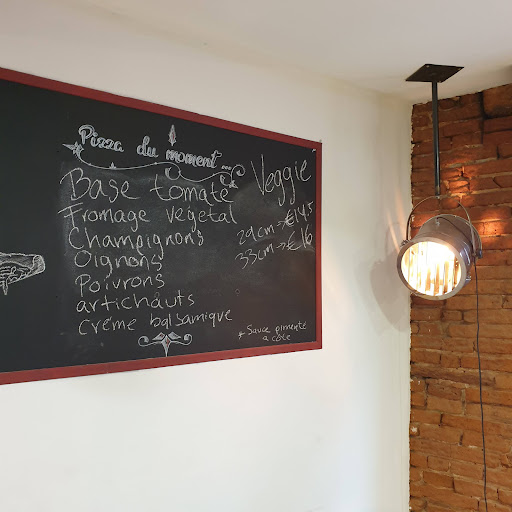 Pizza du moment ...
Veggie
Base tomate
Fromage végétal
Champignons
Oignons
Poivrons
artichauts
crème balsamique
29cm → €14,5
33cm → €16
* Sauce pimenté
a côté